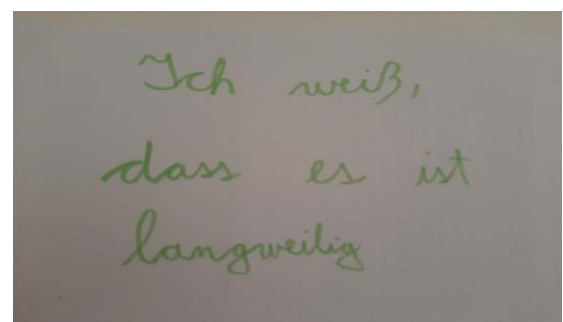 Ich weiß,
dass es ist
langweilig